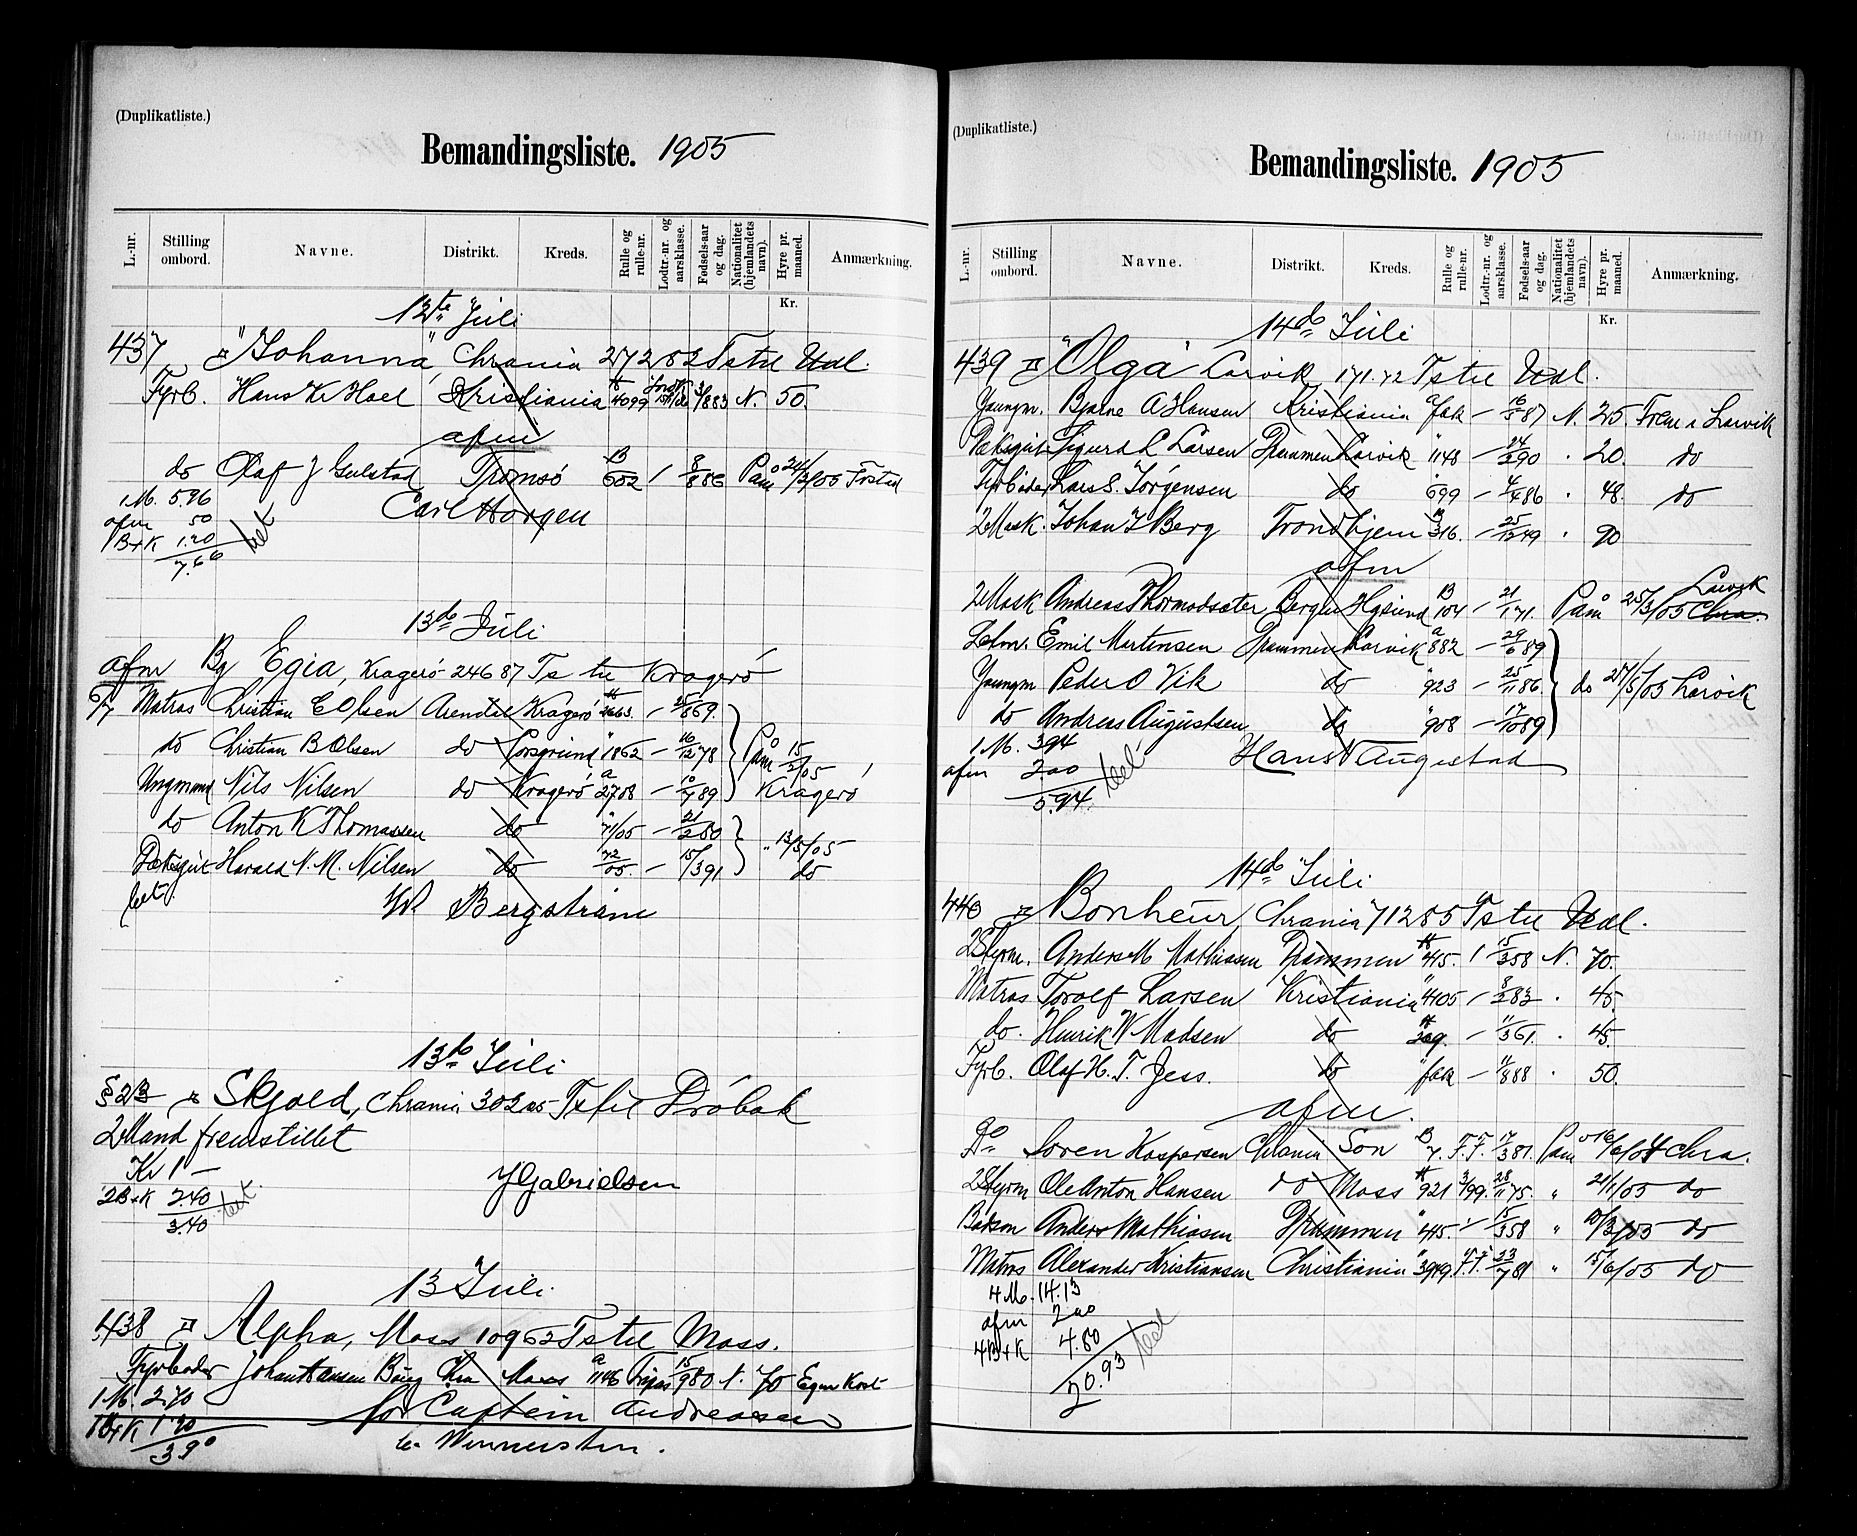 (Duplikatliste.)
Bemandingsliste. 1905
L.-nr. Stilling ombord. Navne. Distrikt. Kreds. Rulle og rulle-nr. Lodtr.-nr. og aarsklasse. Fødsels-aar og dag. Nationalitet (hjemlandets navn). Hyre pr. maaned. Anmærkning.
Kr.
12te Juli
437 "Johanna", Chrania 272 82 Ts til Udl.
Fyrb. Hans K Hoel Kristiania 4099 3/883 N. 50.
afm
do Olaf J Gulstad Tromsö 602 1 8/886 Påm 24/2/05 Frstad
1 M. 5.96 Carl Horgen
afm 50
1 B+K 1.20
7.66 bet
13de Juli
afm Bg Egia, Kragerö 246 87 Ts til Kragerö
6/7 Matros Christian E Olsen Arendal Kragerö 2663 - 25/869
do Christian B Olsen do Porsgrund " 1862 - 16/1278 Påm 15/2/05
Ungmand Nils Nilsen do Kragerö a 2708 - 10/789 Kragerö
do Anton K Thomassen do " 71/05 - 21/280 " 13/5/05
Dæksgut Harald N. M. Nilsen do 72/05 - 15/391 do
bet. Bergström
13de Juli
§ 2B Skjold, Chrania 302 05 Ts til Dröbak
2 Mand fremstillet
Kr 1 -
2 B+K 2.40 J Gabrielsen
3.40 bet.
13 Juli
438 Alpha, Moss 109 62 Ts til Moss.
Fyrböder Johan Hansen Chra Moss a 1146 15/980 N. 70 Egen Kost
1 M. 2.70 for Captein Andreassen
1 B+K 1.20
3.90
(Duplikatliste.)
Bemandingsliste. 1905
L.-nr. Stilling ombord. Navne. Distrikt. Kreds. Rulle og rulle-nr. Lodtr.-nr. og aarsklasse. Fødsels-aar og dag. Nationalitet (hjemlandets navn). Hyre pr. maaned. Anmærkning.
Kr.
14de Juli
439 "Olga" Larvik 171.72 Ts til Udl.
Youngm. Bjarne A Hansen Kristiania a fak - 16/587 N. 25. Frem i Larvik
Dæksgut Sigurd L Larsen Drammen Larvik " 1148 - 24/290 . 20. do
Fyrböder Lars S. Jörgensen do 699 - 4/486 . 48. do
2 Mask. Johan J Berg Trondhjem B 316. - 25/1249 . 90
afm
2 Mask Andreas Thormodsæter Bergen B 104 - 21/171. Påm 25/3/05 Chra. Larvik
Letm. Emil Martinsen Drammen Larvik a 882 - 29/689
Youngm Peder O Vik do " 923 - 25/1186. do 27/5/05 Larvik
do Andreas Augustsen do " 908 - 17/1089
1 M. 394 Hans N Augestad
afm 200
5.94 bet
14de Juli
440 Bonheur, Chrania 71 285 Ts til Udl.
2 Styrm. Anders M Mathiesen Drammen 415. 1 15/358 N. 70.
Matros Torolf Larsen Kristiania " 4105 - 8/283 . 45.
do. Henrik W Madsen do 309. - 11/361. . 45.
Fyrb. Olaf H. T. Jess. do fak - 11/888 . 50.
afm.
Do Sören Kaspersen Chrania Son B 7. F.F. 17/381. Påm 16/6/04 Chra.
2 Styrm Ole Anton Hansen do Moss 921 3/99. 28/1175. " 21/1/05 do
Båtsm Anders Mathiasen Drammen " 415. - 15/358 " 10/3/05 do
Matros Alexander Kristiansen Christiania " 3949 F.F. 23/781 " 15/6/05 do
4 M. 14.13
afm 200
4 B+K 4.80
20.93 bet